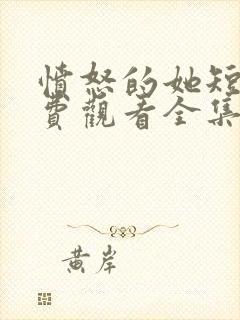 憤怒的她短
費觀看全集
黃岸